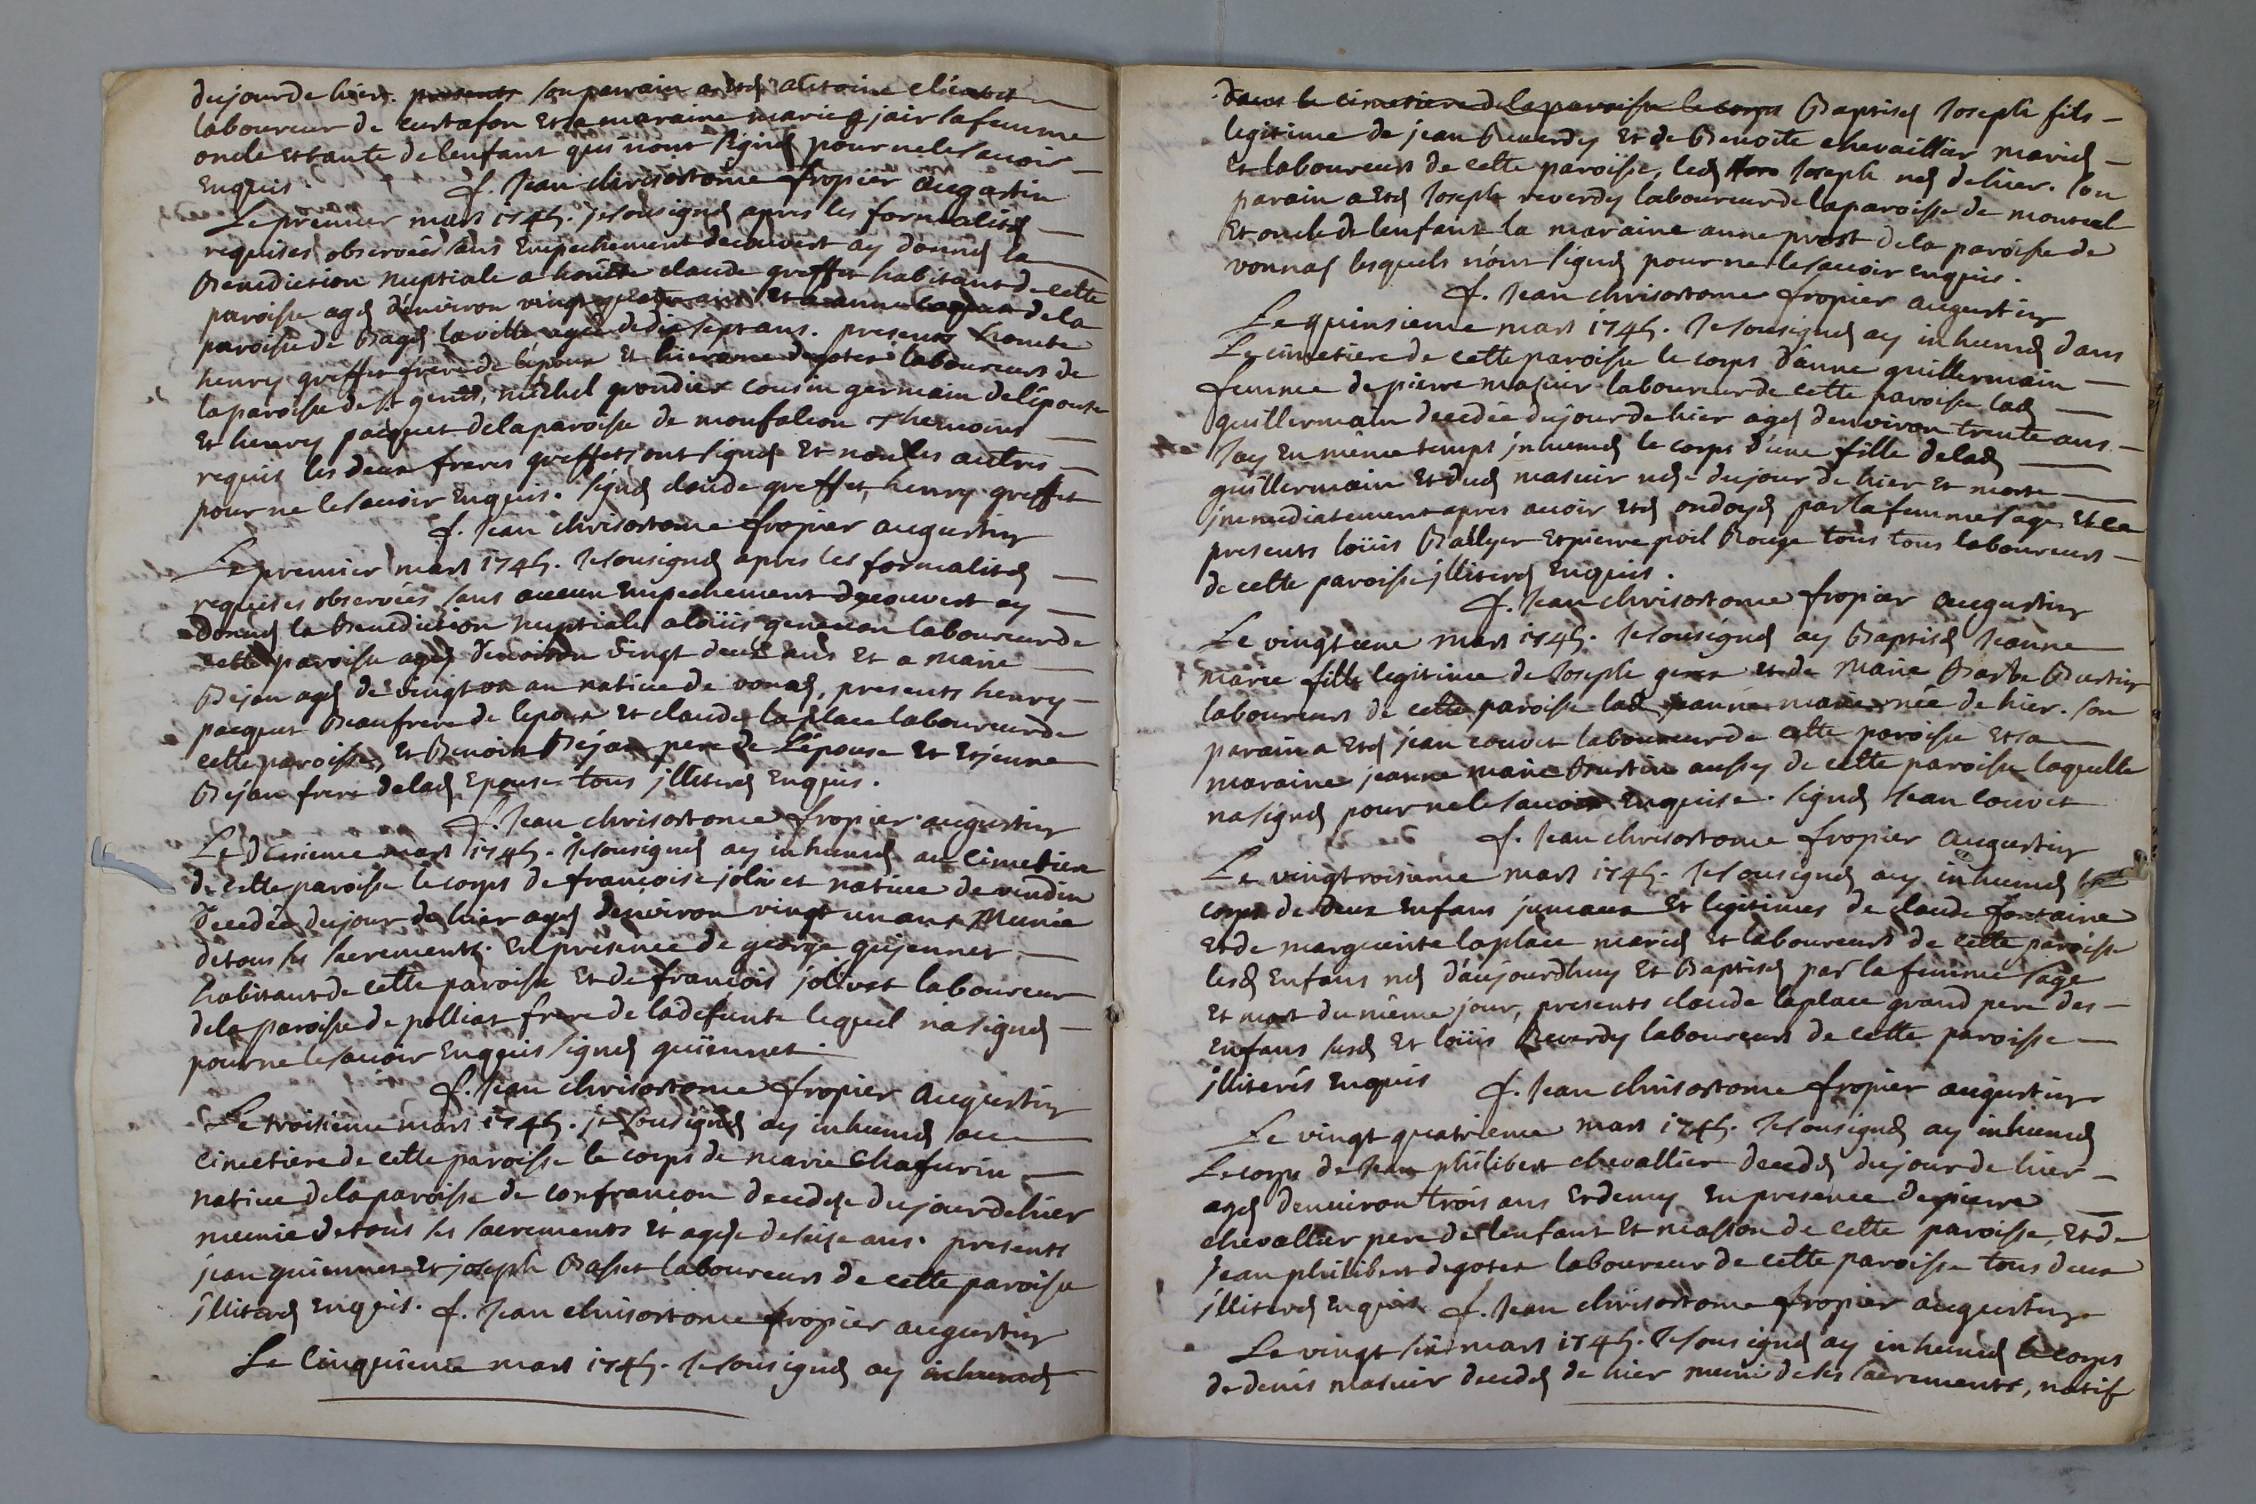 du jour de hier. presents son parrain a eté antoine
laboureur de curtafon et sa maraine marie jair sa femme
oncle et tante de lenfant qui nont signé pour ne le savoir
enquis. f. Jean chrisostome fropier augustin
Le premier mars 1745. Je sousigné apres les formalités
requises observées sans empechement decouvert ay donné la
Benediction nuptiale a honete claude greffet habitant de cette
paroisse agé denviron vingt quatre ans et a anne de la
paroisse de Bagé la ville agée de dix sept ans. presents honete
henry greffet frere de lépoux et hierome degotet laboureurs de
la paroisse de st genis, michel gondier cousin germain de lépouse
et henry pacquet de la paroisse de monfalcon themoins
requis les deux freres greffets ont signé et non les autres
pour ne le savoir enquis. signé claude greffet, henry greffet
f. Jean chrisostome fropier augustin
Le premier mars 1745. Je sousigné apres les formalités
requises observées sans aucun empechement decouvert ay
donné la Benediction nuptiale a loüis genevon laboureur de
cette paroisse agé denviron vingt deux ans et a marie
Béjan agé de vingt un an native de vonas, presents henry
pacquet Beaufrere de lepoux et claude laplace laboureur de
cette paroisse, et Benoit Béjan pere de lépouse et etienne
Béjan frere de lad epouse tous jlliterés enquis.
f. Jean chrisostome fropier augustin
Le deusieme mars 1745. Je sousigné ay inhumé au cimetiere
de cette paroisse le corps de françoise jolivet native de
decedée du jour de hier agé denviron vingt un ans munie
de tous ses sacrements. en presence de george guyennet
habitant de cette paroisse et de françois jolivet laboureur
de la paroisse de polliat frere de la defunte lequel na signé
pour ne le savoir enquis signé guïennet.
f. Jean chrisostome fropier augustin
Le troisieme mars 1745. je sousigné ay inhumé au
cimetiere de cette paroisse le corps de marie Chafurin
native de la paroisse de confrancon decedée du jour de hier
munie de tous ses sacrements et agée de seise ans. presents
jean guiennet et joseph Basset laboureurs de cette paroisse
jlliterés enquis. f. Jean chrisostome fropier augustin
Le Cinquieme mars 1745. Je sousigné ay inhumé
dans le cimetiere de la paroisse le corps Baptisé Joseph fils
legitime de jean Reverdy et de Benoite chevaillier mariés
et laboureurs de cette paroisse, led Joseph né de hier. son
parain a eté Joseph reverdy laboureur de la paroisse de moncel
et oncle de lenfant la maraine anne prost de la paroisse de
vonnas lesquels nónt signé pour ne le savoir enquis.
f. Jean chrisostome fropier augustin
Le quinsieme mars 1745. Je sousigné ay inhumé dans
Le cimetiere de cette paroisse le corps dánne guillermain
femme de pierre masuir laboureur de cette paroisse lad
guillermain decedée du jour de hier agé denviron trente ans
Jay en même temps jnhumé le corps d'une fille de lad
guillermain et dud masuir née du jour de hier et morte
jmmediatement apres avoir eté ondoyé par la femme sage et la
presents loüis Ballyer et pierre poil Rouge tous tous laboureurs
de cette paroisse jlliterés enquis.
f. Jean chrisostome fropier augustin
Le vingt mars 1745. Je sousigné ay Baptisé Jeanne
marie fille legitime de Joseph et de marie Barbe Burtin
laboureurs de cette paroisse lad jeanne marie née de hier. son
parain a eté jean couvet laboureur de cette paroisse et sa
maraine jeanne marie Burtin aussy de cette paroisse laquelle
na signé pour ne le savoir enquise. signé Jean couvet
f. Jean chrisostome fropier augustin
Le vingtroisieme mars 1745. Je sousigné ay inhumé les
corps de deux enfans jumeaux et legitimes de claude fontaine
et de marguerite laplace mariés et laboureurs de cette paroisse
lesd enfans nés d'aujourdhuy et Baptisés par la femme sage
et mort du même jour, presents claude laplace grand pere des
enfans susd et loüis Reverdy laboureurs de cette paroisse
jlliterés enquis f. Jean chrisostome fropier augustin
Le vingt quatrieme mars 1745. Je sousigné ay inhumé
Le corps de Jean philibert chevallier decedé du jour de hier
agé denviron trois ans et demy en presence de pierre
chevallier pere de lenfant et masson de cette paroisse, et de
Jean philibert degotet laboureur de cette paroisse tous deux
jlliterés enquis f. Jean chrisostome fropier augustin
Le vingt six mars 1745. Je sousigné ay inhumé le corps
de denis masuir decedé de hier muni de ses sacrements, natif